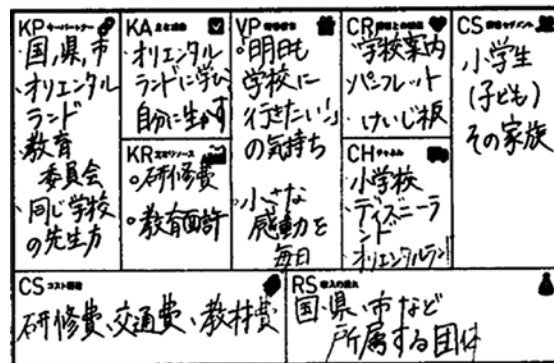 KP キーパートナー
・国,県,市
・オリエンタル
ランド
・教育
委員会
・同じ学校
の先生方
KA 主な活動
・オリエンタル
ランドに学び
自分に生かす
KR 主なリソース
○研修費
○教育免許
VP
○「明日も
学校に
行きたい!」
の気持ち
・小さな
感動を
毎日
CR
・学校案内
パンフレット
・けいじ板
CH チャネル
・小学校
・ディズニーラ
ンド
・オリエンタルランド
CS
・小学生
(子ども)
その家族
CS コスト構造
研修費、交通費、教材費
RS 収入の流れ
国・県・市など
所属する団体